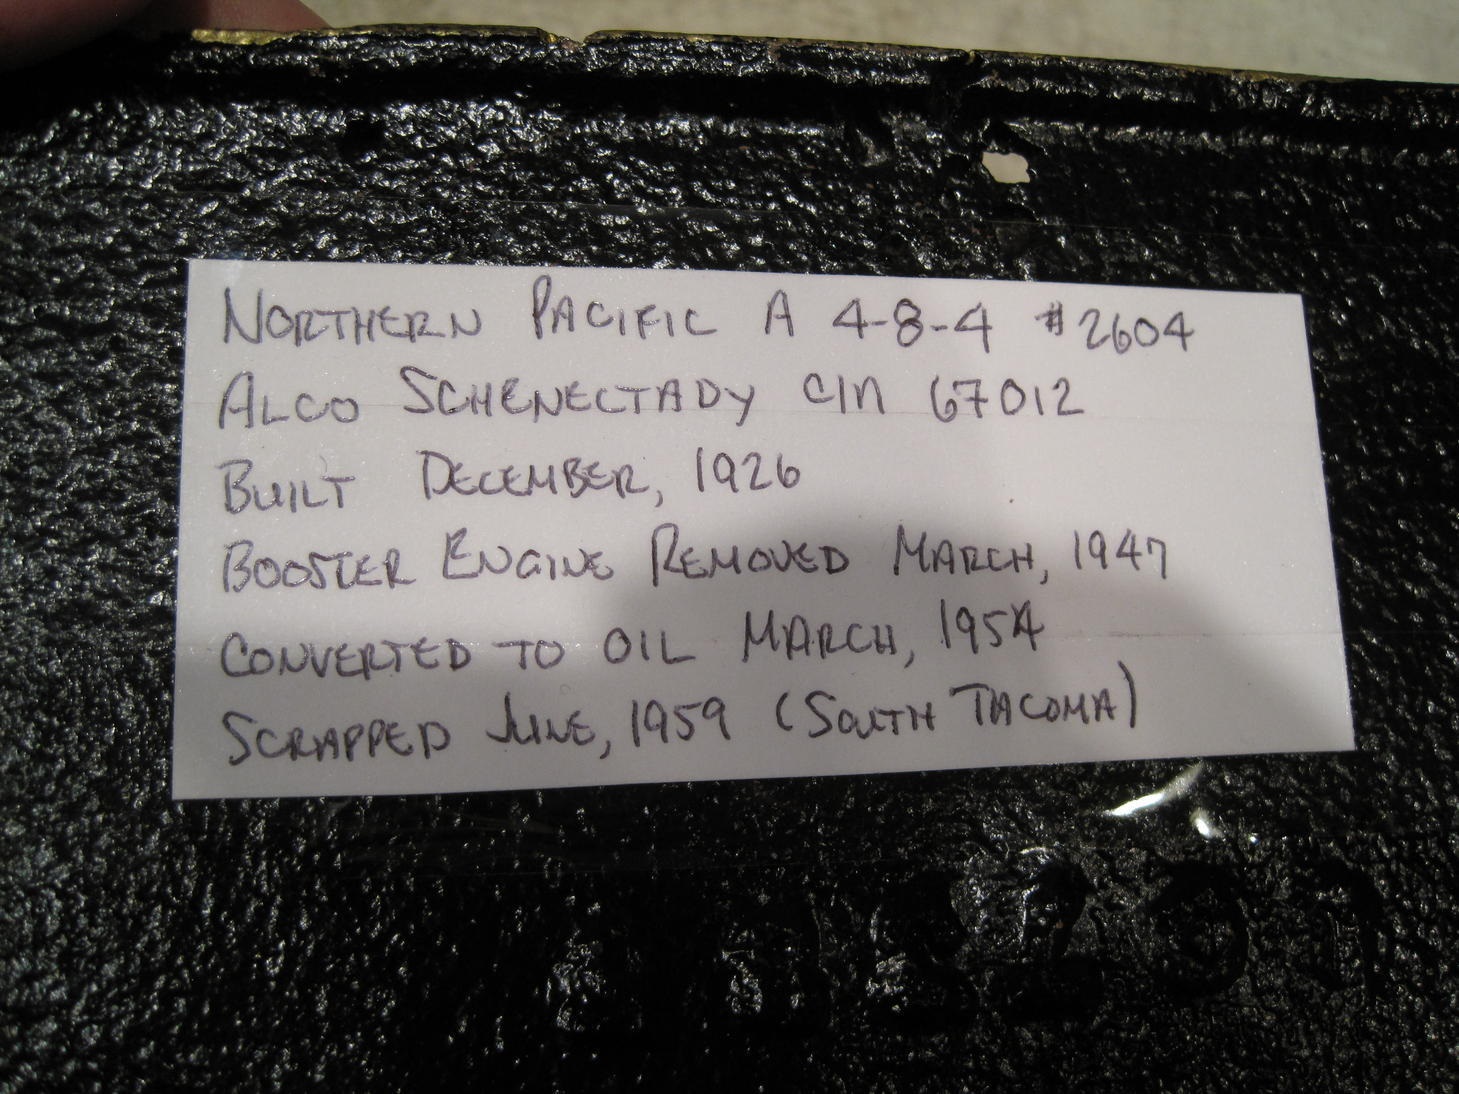 Northern Pacific A 4-8-4 #2604
Alco Schenectady C/N 67012
Built December, 1926
Booster Engine Removed March, 1947
Converted to Oil March, 1954
Scrapped June, 1959 (South Tacoma)